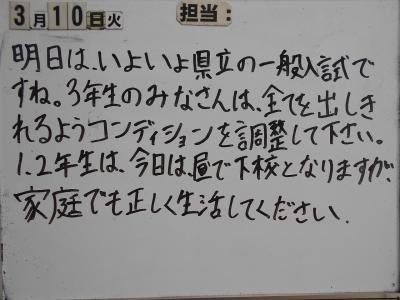 3月10日火 担当:
明日は、いよいよ県立の一般入試で
すね。3年生のみなさんは、全てを出しき
れるようコンディションを調整して下さい。
1.2年生は、今日は、昼で下校となりますが、
家庭でも正しく生活してください.